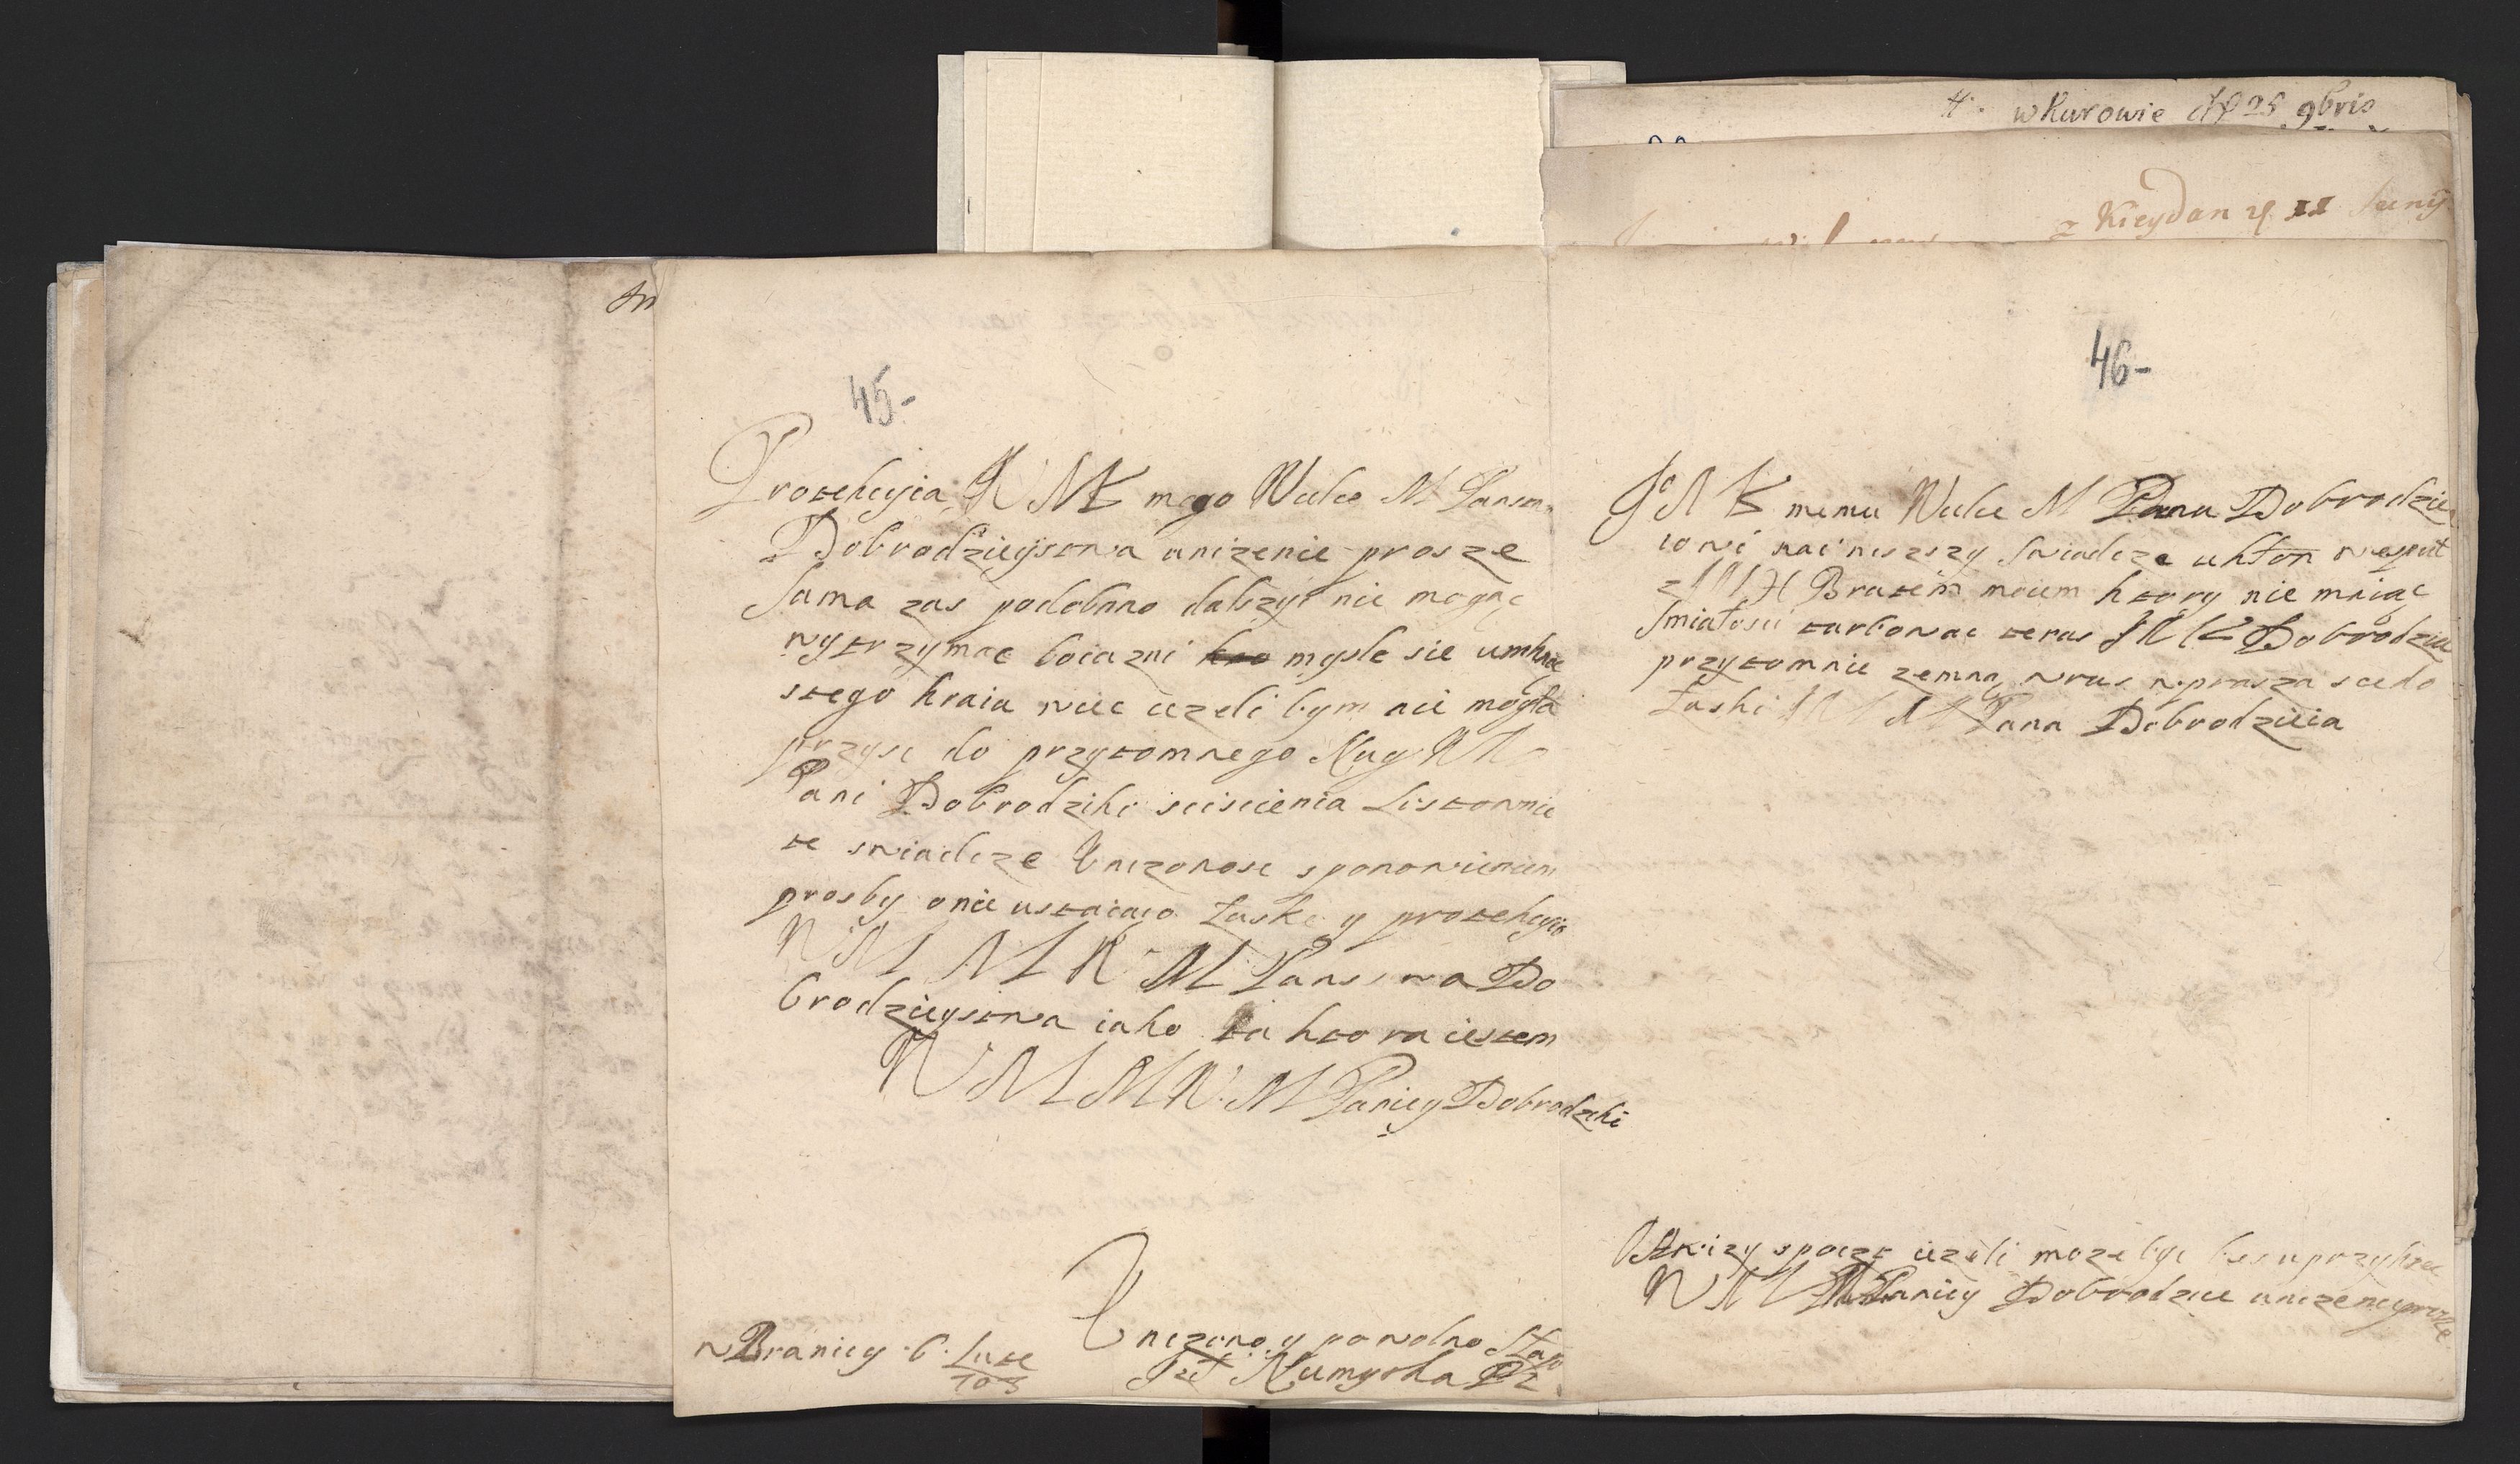 w Kurowie d 28 9bris
z Kieydan 11 Juny
45-
Protekcyia W M mego Wielce M Panstwa
Dobrodzieystwa unizenie prosze
Sama zas podobno dalszyi nie mogąc
wytrzymac boiazni mysle sie umknąc
stego kraiu wiec iezeli bym nie mogła
przysc do przytomnego Nug W
Pani Dobrodziki scisnienia Listownie
te swiadcze Unizonosc sponowieniem
prosby o nie ustaiąco Łaske y protekcyio
W M M W M Panstwa Do
brodzieystwa iako ta ktora iestem
W M M W M Paniey Dobrodziki
Unizono y powolno Sługo
w Braniey 6 Lute
703
46-
memu Wielce M Panu Dobrodzie
iowi nainiszszy Swiadcze ukłon wespoł
z Bratem moiem ktory nie maiąc
Smiałosci turbowac teras Dobrodzieia
przytomnie zemną wras wprasza sie do
Łaski Pana Dobrodzieia
iezeli moze byc bes uprzykrze
W M Paniey Dobrodzice unizenie prosze